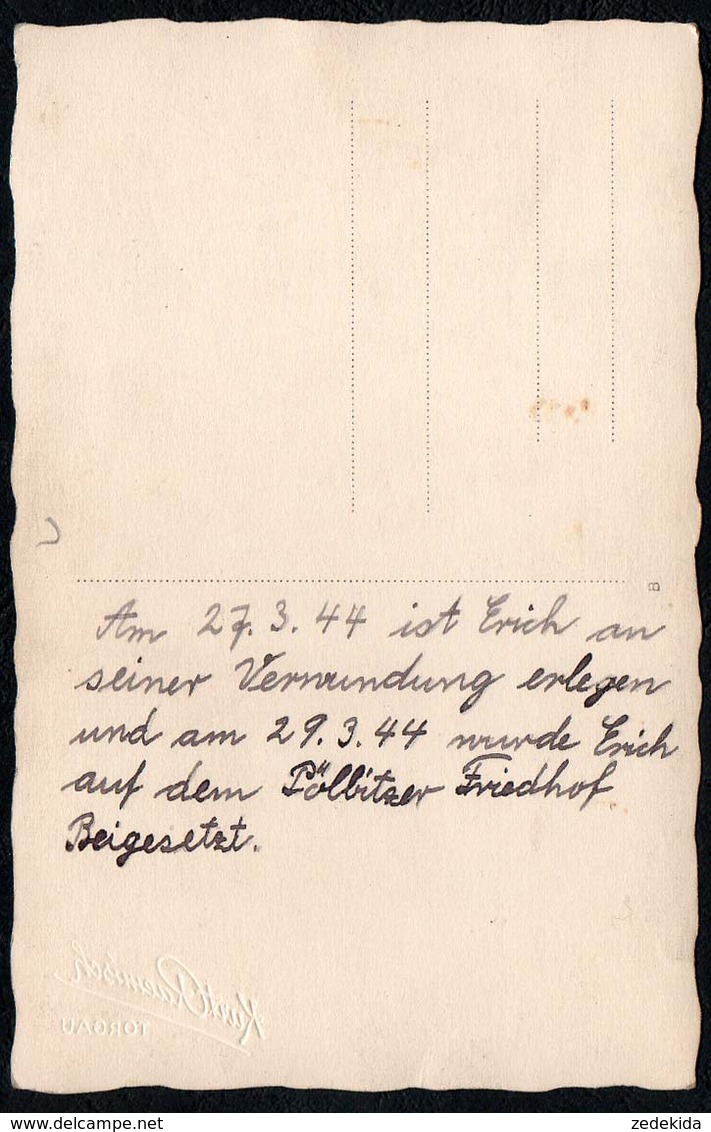 B
Am 27.3.44 ist Erich an
seiner Verwundung erlegen
und am 29.3.44 wurde Erich
auf dem Pölbitzer Friedhof
Beigesetzt.
TORGAU
delcampe.net
zedekida